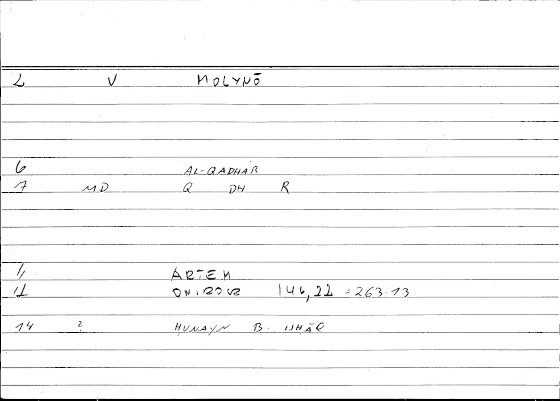 2 V MOLYNŌ
6 AL-QADHAR
7 MD Q DH R
11 ARTEM
12 ONIROCR 146,22 = 263.13
14 ? HUNAYN B. ISHĀQ